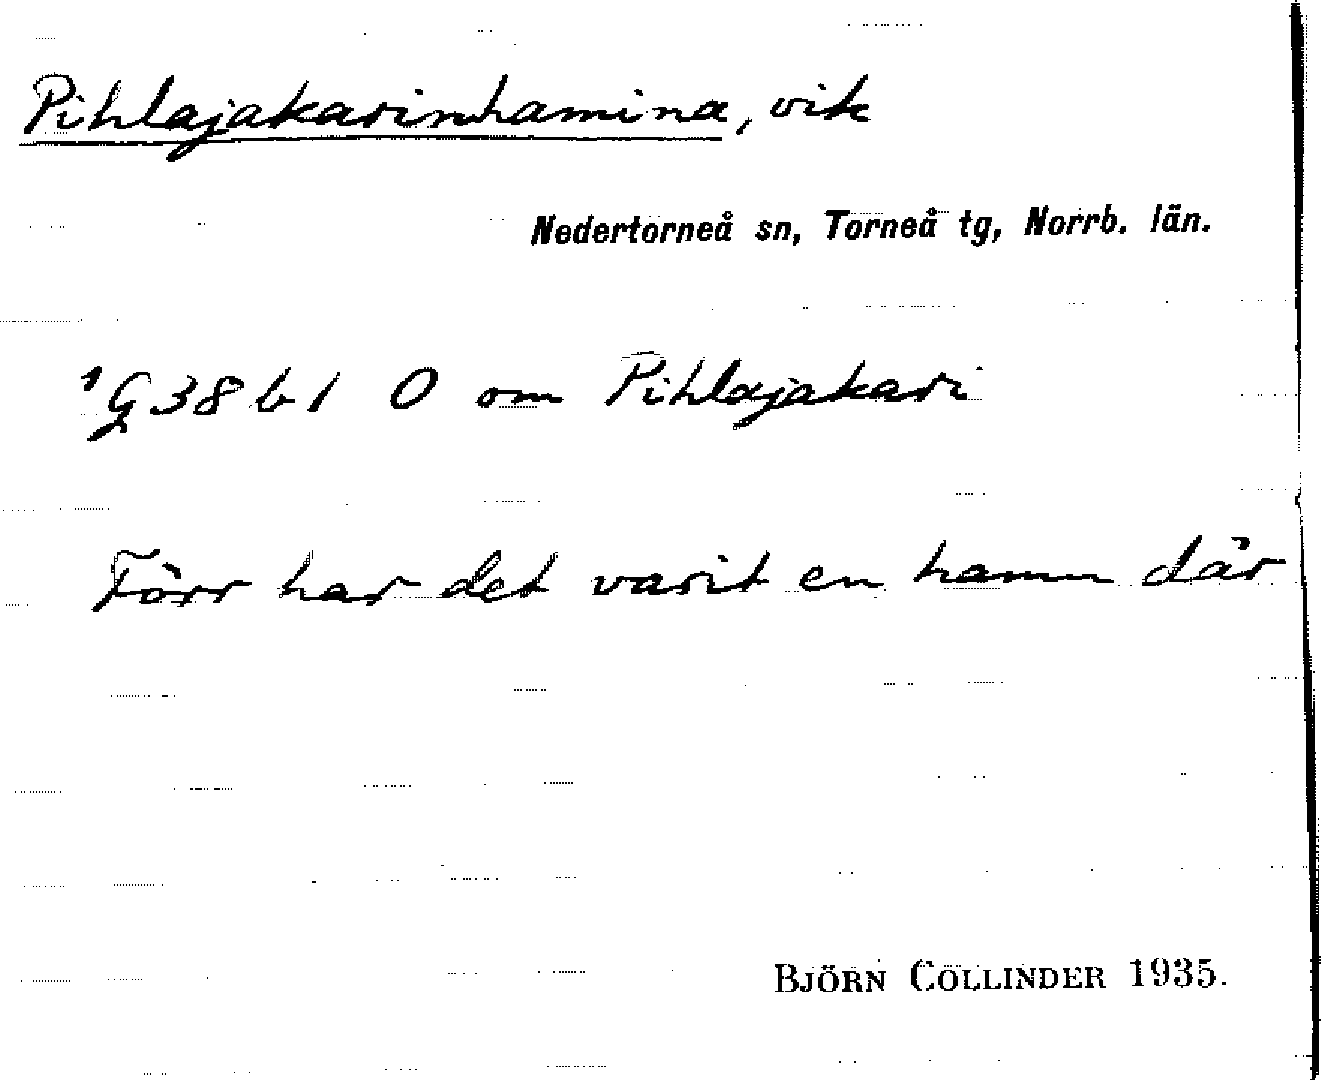 Pihlajakarinhamina, vik
Nedertorneå sn, Torneå tg, Norrb. län.
¹G38b1 O om Pihlajakari
Förr har det varit en hamn där
BJÖRN COLLINDER 1935.